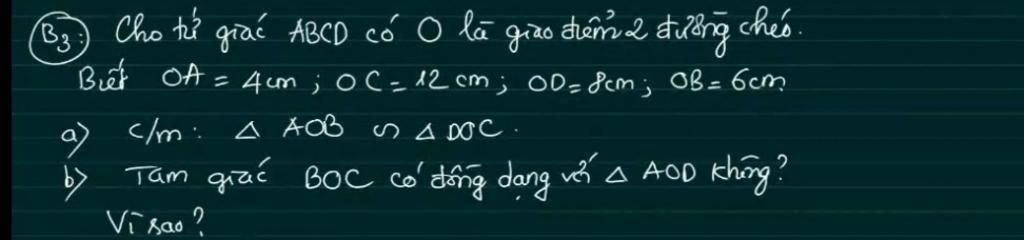 B3: Cho tứ giác ABCD có O là giao điểm 2 đường chéo.
Biết OA = 4cm ; OC = 12 cm ; OD = 8cm ; OB = 6cm
a) c/m : △ AOB ∽ △ DOC .
b) Tam giác BOC có đồng dạng với △ AOD không?
Vì sao?